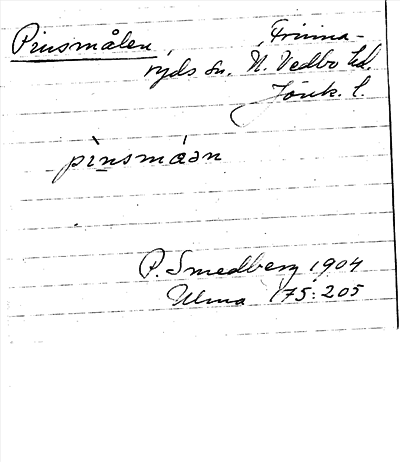 Pinsmålen, Frinna-
ryds sn. N. Vedbo hd.
Jönk. l.
pìnsmáən
P. Smedberg 1904
Ulma 175:205